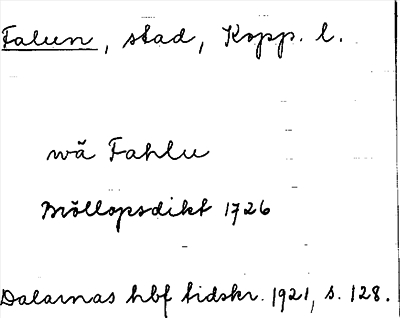 Falun, stad, Kopp. l.
wä Fahlu
Bröllopsdikt 1726
Dalarnas hbf tidskr. 1921, s. 128.